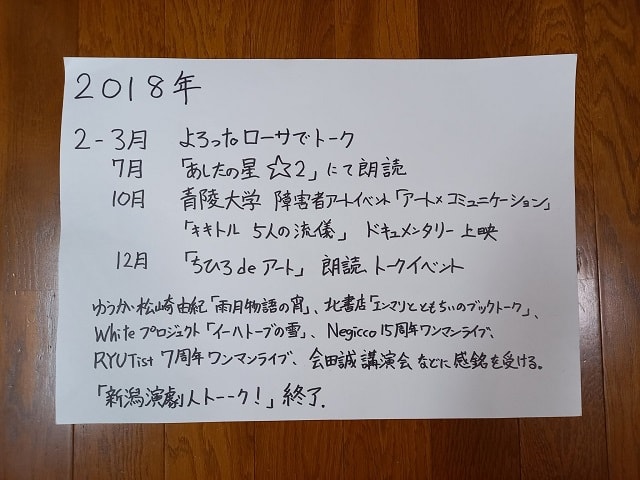 2018年
2-3月 よろったローサでトーク
7月 「あしたの星☆2」にて朗読
10月 青陵大学 障害者アートイベント「アート×コミュニケーション」
「キキトル 5人の流儀」 ドキュメンタリー上映
12月 「ちひろdeアート」 朗読、トークイベント
ゆうか・松崎由紀「雨月物語の宵」、北書店「エンマリとともちぃのブックトーク」、
Whiteプロジェクト「イーハトーブの雪」、Negicco 15周年ワンマンライブ、
RYUTist 7周年ワンマンライブ、会田誠講演会などに感銘を受ける。
「新潟演劇人トーーク!」終了.